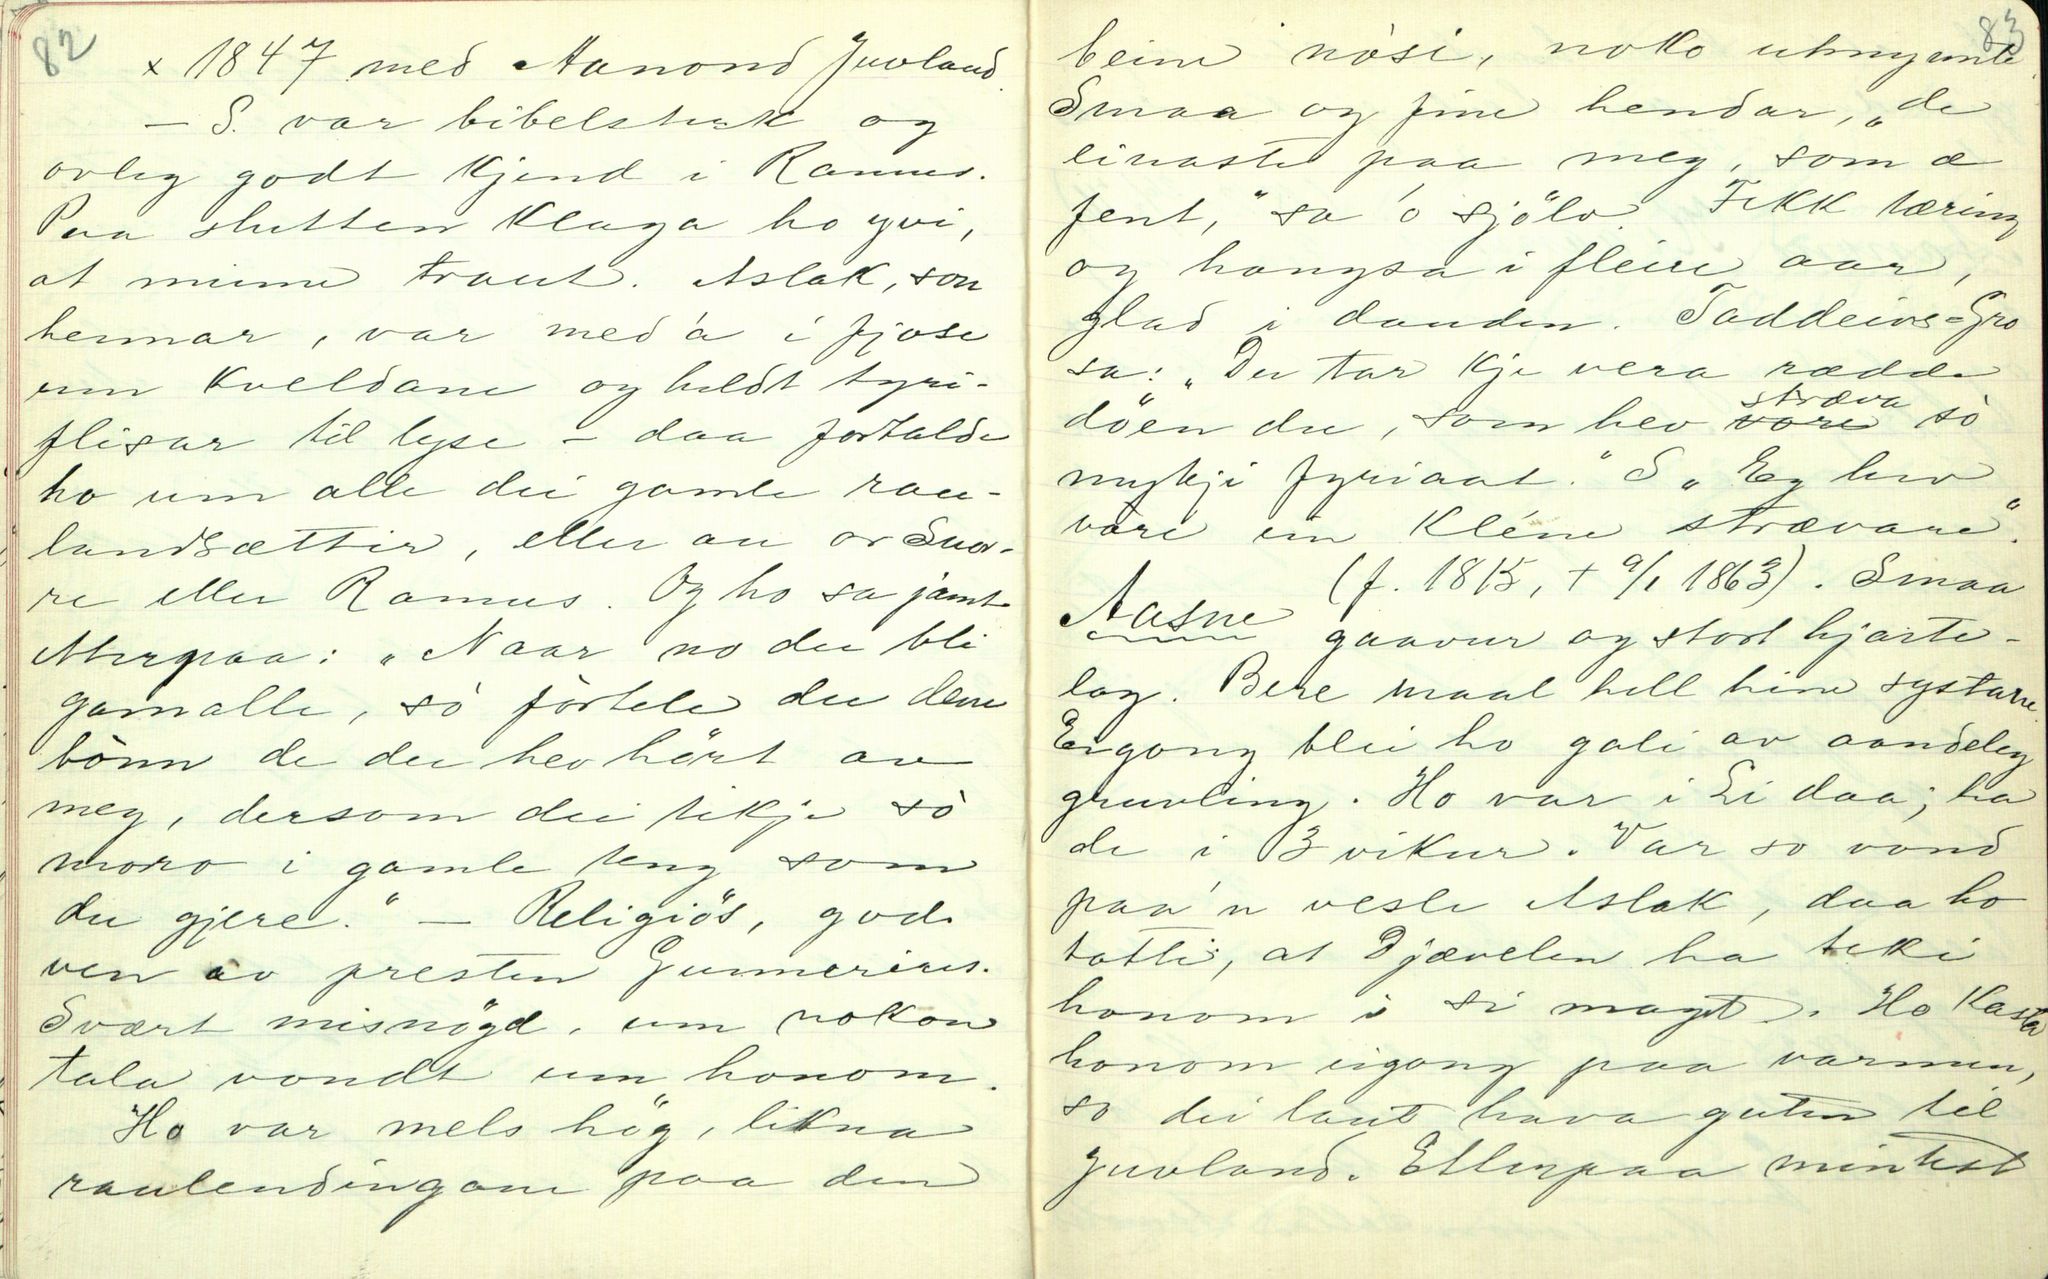 82
x 1847 med Aanond Juvland.
— S. var bibelsterk og
ovleg godt kjend i Ramus.
Paa slutten klaga ho yvi,
at minne traut. Aslak, son
hennar, var med'a i fjose
um kveldane og heldt tyri-
flisar til lyse – daa fortalde
ho um alle dei gamle rau-
landsættir, eller au or Snor-
re eller Ramus. Og ho sa jamt
etterpaa: „Naar no du bli
gamalle, sò fortele du dene
bònn de du hev hört av
meg, dersom dei tikje sò
moro i gamle teng som
du gjere." — Religiös, god-
ven av presten Gunnerius.
Svært misnögd, um nokon
tala vondt um honom.
Ho var mels hög, likna
raulendingane paa den
83
beine nòsi, noko utmynnte.
Smaa og fine hendar, „de
einaste paa meg, som æ
fent," sa 'o sjölv. Fekk tæring
og hangsa i fleire aar,
glad i dauden. Taddeivs-Gro
sa: „Du tar kje vera rædde
döen du, som hev vore stræva sò
mykji fyriaat." S „Eg hev
vore ein kléne strævare".
(f. 1815, + 9/1 1863). Smaa
Aasne gaavur og stort hjarte-
lag. Bere maal hell hine systarne.
Eigong blei ho gali av aandeleg
gruvling. Ho var i Li daa; ha
de i 3 vikur. Var so vond
paa'n vesle Aslak, daa ho
totti, at Djævelen ha teki
honom i si magt. Ho kasta
honom eigong paa varmen,
so dei laut hava guten til
Juvland. Etterpaa mintest